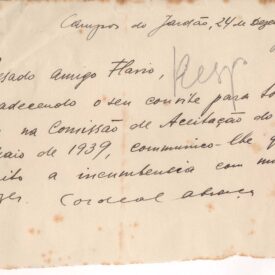 Campos do Jordão, 24 de Deze
sado amigo Flavio,
adecendo o seu convite para to
na Comissão de Aceitação do
aio de 1939, communico-lhe q
ito a incumbencia com m
zer. Cordeal abraço